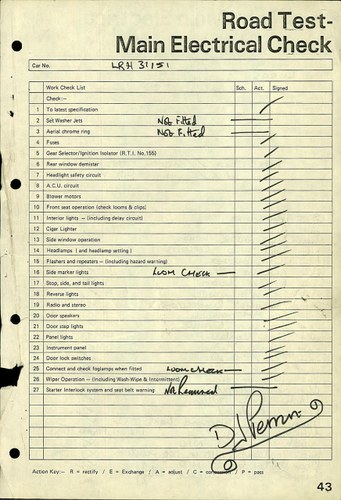 Road Test-
Main Electrical Check
Car No. LRH 31151
Work Check List Sch. Act. Signed
Check:—
1 To latest specification
2 Set Washer Jets Not Fitted
3 Aerial chrome ring Not Fitted
4 Fuses
5 Gear Selector/Ignition Isolator (R.T.I. No.156)
6 Rear window demister
7 Headlight safety circuit
8 A.C.U. circuit
9 Blower motors
10 Front seat operation (check looms & clips)
11 Interior lights — (including delay circuit)
12 Cigar Lighter
13 Side window operation
14 Headlamps ( and headlamp setting )
15 Flashers and repeaters — (including hazard warning)
16 Side marker lights Loom Check
17 Stop, side, and tail lights
18 Reverse lights
19 Radio and stereo
20 Door speakers
21 Door step lights
22 Panel lights
23 Instrument panel
24 Door lock switches
25 Connect and check foglamps when fitted Loom check
26 Wiper Operation — (including Wash-Wipe & Intermittent)
27 Starter Interlock system and seat belt warning Not Required
Action Key:— R = rectify / E = Exchange / A = adjust / C = / P = pass
43